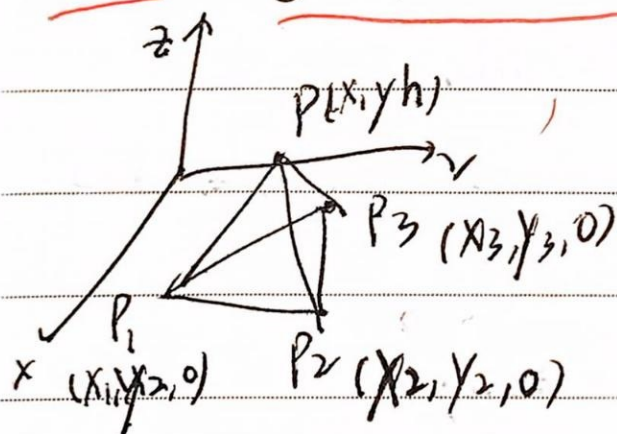 Z
P(x,yh)
y
P3 (X3,Y3,0)
P1
P2 (X2,Y2,0)
x (x1,y2,0)